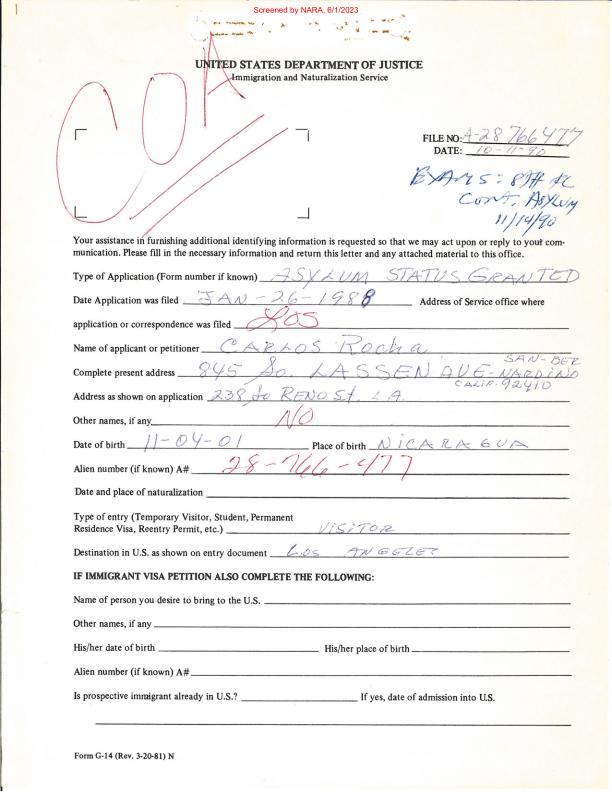 Screened by NARA, 6/1/2023
UNITED STATES DEPARTMENT OF JUSTICE
Immigration and Naturalization Service
COA
FILE NO: A-28 766 477
DATE: 10-11-90
EXAMS: 8TH FL
Cont. Asylum
11/14/90
Your assistance in furnishing additional identifying information is requested so that we may act upon or reply to your com-
munication. Please fill in the necessary information and return this letter and any attached material to this office.
Type of Application (Form number if known) ASYLUM STATUS GRANTED
Date Application was filed JAN-26-1988 Address of Service office where
application or correspondence was filed LOS
Name of applicant or petitioner CARLOS Rocha
Complete present address 845 So. LASSEN AVE- SAN-BERNARDINO CALIF. 92410
Address as shown on application 238 So RENO St. L.A.
Other names, if any NO
Date of birth 11-04-01 Place of birth NICARAGUA
Alien number (if known) A# 28-766-477
Date and place of naturalization
Type of entry (Temporary Visitor, Student, Permanent
Residence Visa, Reentry Permit, etc.) VISITOR
Destination in U.S. as shown on entry document LOS ANGELES
IF IMMIGRANT VISA PETITION ALSO COMPLETE THE FOLLOWING:
Name of person you desire to bring to the U.S.
Other names, if any
His/her date of birth His/her place of birth
Alien number (if known) A#
Is prospective immigrant already in U.S.? If yes, date of admission into U.S.
Form G-14 (Rev. 3-20-81) N